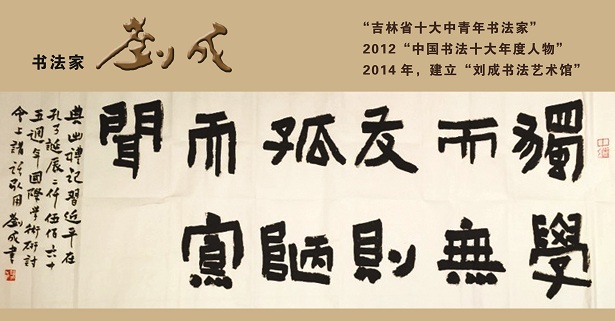 书法家 劉成
“吉林省十大中青年书法家”
2012“中国书法十大年度人物”
2014年，建立“刘成书法艺术馆”
獨學
而無
友則
孤陋
而寡
聞
典出禮記習近平在
孔子誕辰二仟伍佰六十
五週年國際學術研討
會上講話引用劉成書